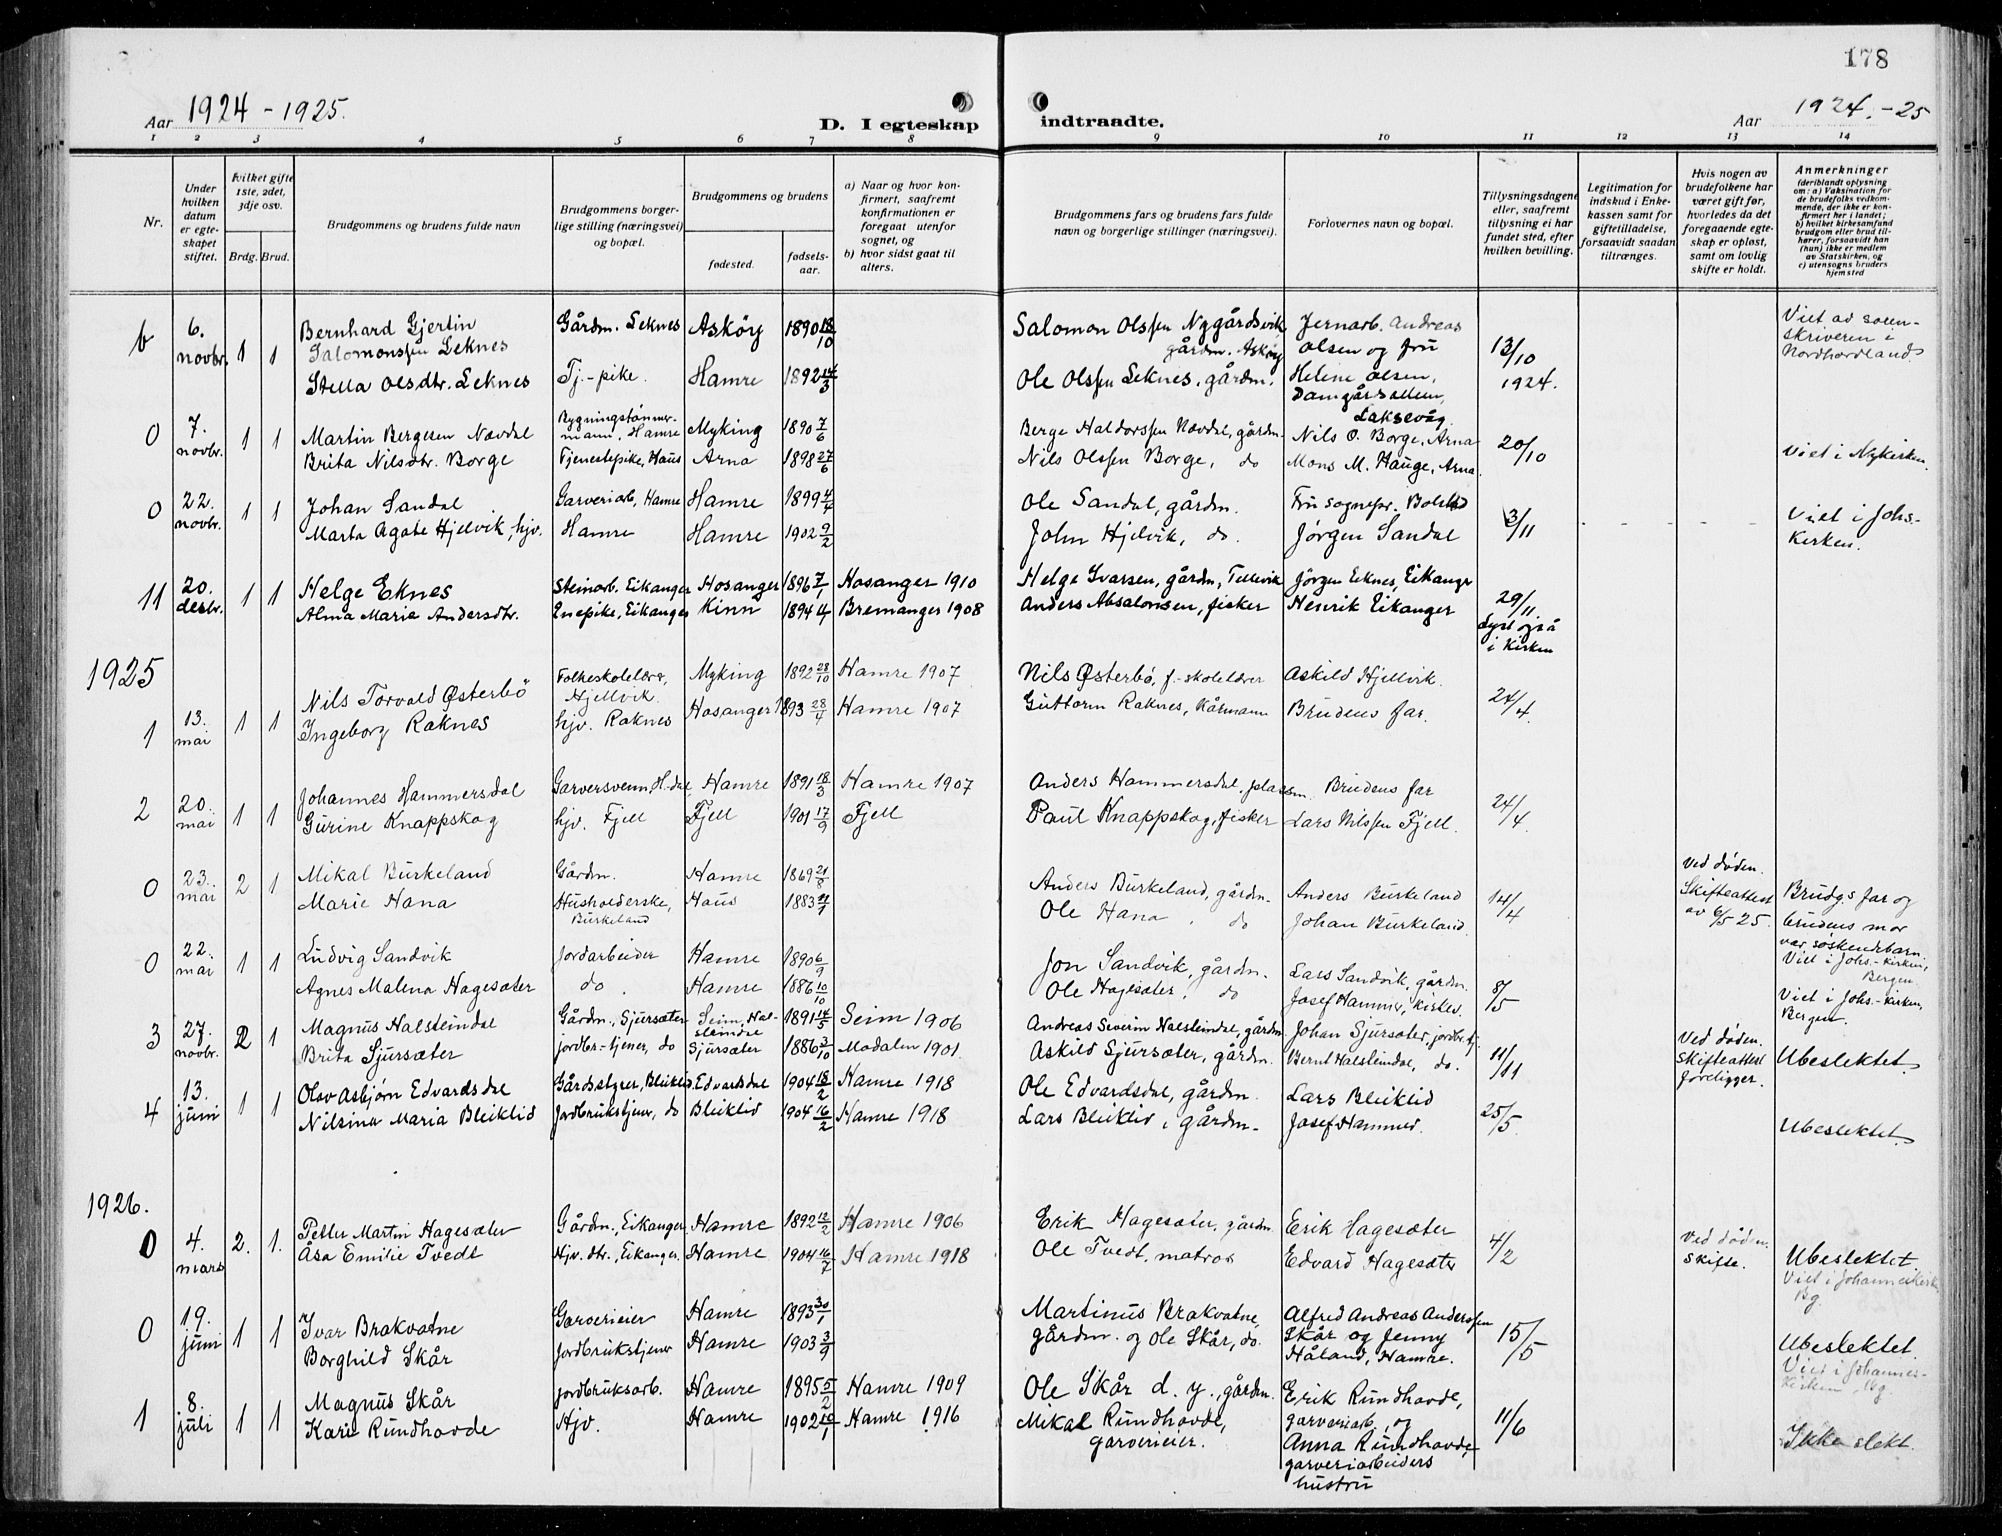 178
Aar 1924-1925.
D. Iegteskap indtraadte.
Aar 1924.-25
1 2 3 4 5 6 7 8 9 10 11 12 13 14
Nr.
Under hvilken datum er egteskapet stiftet.
hvilket gifte 1ste, 2det, 3dje osv.
Brdg. Brud.
Brudgommens og brudens fulde navn
Brudgommens borgerlige stilling (næringsvei) og bopæl.
Brudgommens og brudens
fødested.
fødselsaar.
a) Naar og hvor konfirmert, saafremt konfirmationen er foregaat utenfor sognet, og
b) hvor sidst gaat til alters.
Brudgommens fars og brudens fars fulde navn og borgerlige stillinger (næringsvei).
Forlovernes navn og bopæl.
Tillysningsdagene eller, saafremt tillysning ei har fundet sted, efter hvilken bevilling.
Legitimation for indskud i Enkekassen samt for giftetilladelse, forsaavidt saadan tiltrænges.
Hvis nogen av brudefolkene har været gift før, hvorledes da det foregaaende egteskap er opløst, samt om lovlig skifte er holdt.
Anmerkninger
(deriblandt oplysning om: a) Vaksination for de brudefolks vedkommende, der ikke er konfirmert her i landet; b) hvilket kirkesamfund brudgom eller brud tilhører, forsaavidt han (hun) ikke er medlem av Statskirken, og c) utensogns bruders hjemsted
6 6. novbr. 1 1 Bernhard Gjertin Salomonssen Leknes Gårdm. Leknes Askøy 1890 18/10 Salomon Olssen Nygårdsvik, gårdm. Askøy Jernarb. Andreas Olsen og fru 13/10 1924. Viet av soren-skriveren i Nordhordland
Stella Olsdtr. Leknes Tj.-pike. Hamre 1892 14/3 Ole Olssen Leknes, gårdm. Helene Olsen, Damgårsallem, Laksevåg
0 7. novbr. 1 1 Martin Bergesen Nævdal Bygningstømmermann, Hamre Myking 1890 7/6 Berge Haldorssen Nævdal, gårdm. Nils O. Borge, Arna 20/10 Viet i Nykirken.
Brita Nilsdtr. Borge Tjenestepike, Haus Arna 1898 27/6 Nils Olssen Borge, do Mons M. Hauge, Arna.
0 22. novbr. 1 1 Johan Sandal Garveriarb, Hamre Hamre 1899 4/4 Ole Sandal, gårdm. Fru sognepr. Bolstad 3/11 Viet i Johs.-kirken.
Marta Agate Hjelvik, hjv. Hamre Hamre 1902 9/2 John Hjelvik, do. Jørgen Sandal
11 20. desbr. 1 1 Helge Eknes Steinarb. Eikanger Hosanger 1896 7/1 Hosanger 1910 Helge Ivarsen, gårdm, Tellevik Jörgen Eknes, Eikanger 29/11 lyst også i kirken
Alma Marie Andersdtr. Enepike, Eikanger Kinn 1894 4 Bremanger 1908 Anders Absalonsen, fisker Henrik Eikanger
1925
1 13. mai 1 1 Nils Torvald Østerbö Folkeskolelærer, Hjellvik Myking 1892 28/10 Hamre 1907 Nils Østerbö, f.-skolelærer Askild Hjellvik. 24/4.
Ingeborg Raknes hjv. Raknes Hosanger 1893 28/4 Hamre 1907 Guttorm Raknes, Kårmann Brudens far.
2 20. mai 1 1 Johannes Hammersdal Garversvenn, H.dal Hamre 1891 18/3 Hamre 1907 Anders Hammersdal, plassm. Brudens far 24/4.
Gurine Knappskog hjv. Fjell Fjell 1901 17/9 Fjell Paul Knappskog, fisker Lars Nilssen Fjell.
0 23. mai 2 1 Mikal Burkeland Gårdm. Hamre 1869 21/8 Anders Burkeland, gårdm. Anders Burkeland 14/4 Ved døden. Skifteattest av 6/5 25. Brudgs far og brudens mor var søskendebarn. Viet i Johs.-kirken, Bergen
Marie Hana Husholderske, Burkeland Haus 1883 Ole Hana, do Johan Burkeland.
0 22. mai 1 1 Ludvig Sandvik Jordarbeider Hamre 1890 6/9 Jon Sandvik, gårdm. Lars Sandvik, gårdm. 8/5 Viet i Johs.-kirken, Bergen.
Agnes Malena Hagesæter do. Hamre 1886 10/10 Ole Hagesæter, do Josef Hammer, kirkes.
3 27. novbr. 2 1 Magnus Halsteindal Gårdm., Sjursæter Seim, Halsteindal 1891 14/5 Seim 1906 Andreas Severin Halsteindal, gårdm Johan Sjursæter, jordbr.tj. 11/11 Ved døden. Skifteattest foreligger. Ubeslektet
Brita Sjursæter jordbr.-tjener, do Sjursæter 1886 3/10 Modalen 1901. Askild Sjursæter, gårdm. Bernt Halsteindal, do.
4 13. juni 1 1 Olav Asbjørn Edvardsdal Gårdsstyrer, Bleiklid Edvardsdal 1904 18/2 Hamre 1918 Ole Edvardsdal, gårdm. Lars Bleiklid 25/5. Ubeslektet.
Nilsina Maria Bleiklid Jordbrukstjener, do Bleiklid 1904 16/2 Hamre 1918 Lars Bleiklid, gårdm. Josef Hammer.
1926.
0 4. mars 2. 1. Petter Martin Hagesæter Gårdm., Eikanger Hamre 1892 12/2 Hamre 1906 Erik Hagesæter, gårdm Erik Hagesæter 4/2 Ved døden. Skifte. Ubeslektet. Viet i Johanneskirk. Bg.
Åsa Emilie Tvedt Hjv. dtr., Eikanger. Hamre 1904 16/7 Hamre 1918 Ole Tvedt, matros Edvard Hagesæter
0 19. juni 1 1 Ivar Brakvatne Garverieier Hamre 1893 30/1 Martinus Brakvatne, gårdm. og Ole Skår, do. Alfred Andreas Anderssen Skår og Jenny Håland, Hamre. 15/5 Ubeslektet. Viet i Johannes-kirken, Bg.
Borghild Skår Jordbrukstjener Hamre 1903 3/9
1 8. juli 1 1 Magnus Skår Jordbruksarb. Hamre 1895 5/2 Hamre 1909 Ole Skår d. y., gårdm. Erik Rundhovde, garveriarb, og 11/6 Ikke slekt.
Kari Rundhovde Hjv. Hamre 1902 10/1 Hamre 1916 Mikal Rundhovde, garverieier. Anna Rundhovde, garveriarbeiders hustru